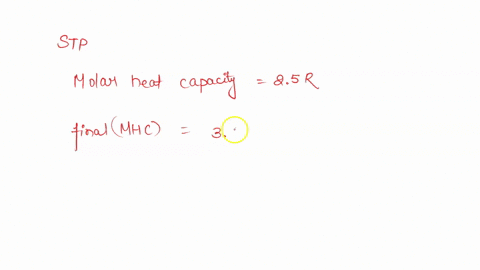 STP
Molar heat capacity = 2.5 R
final (MHC) = 3.